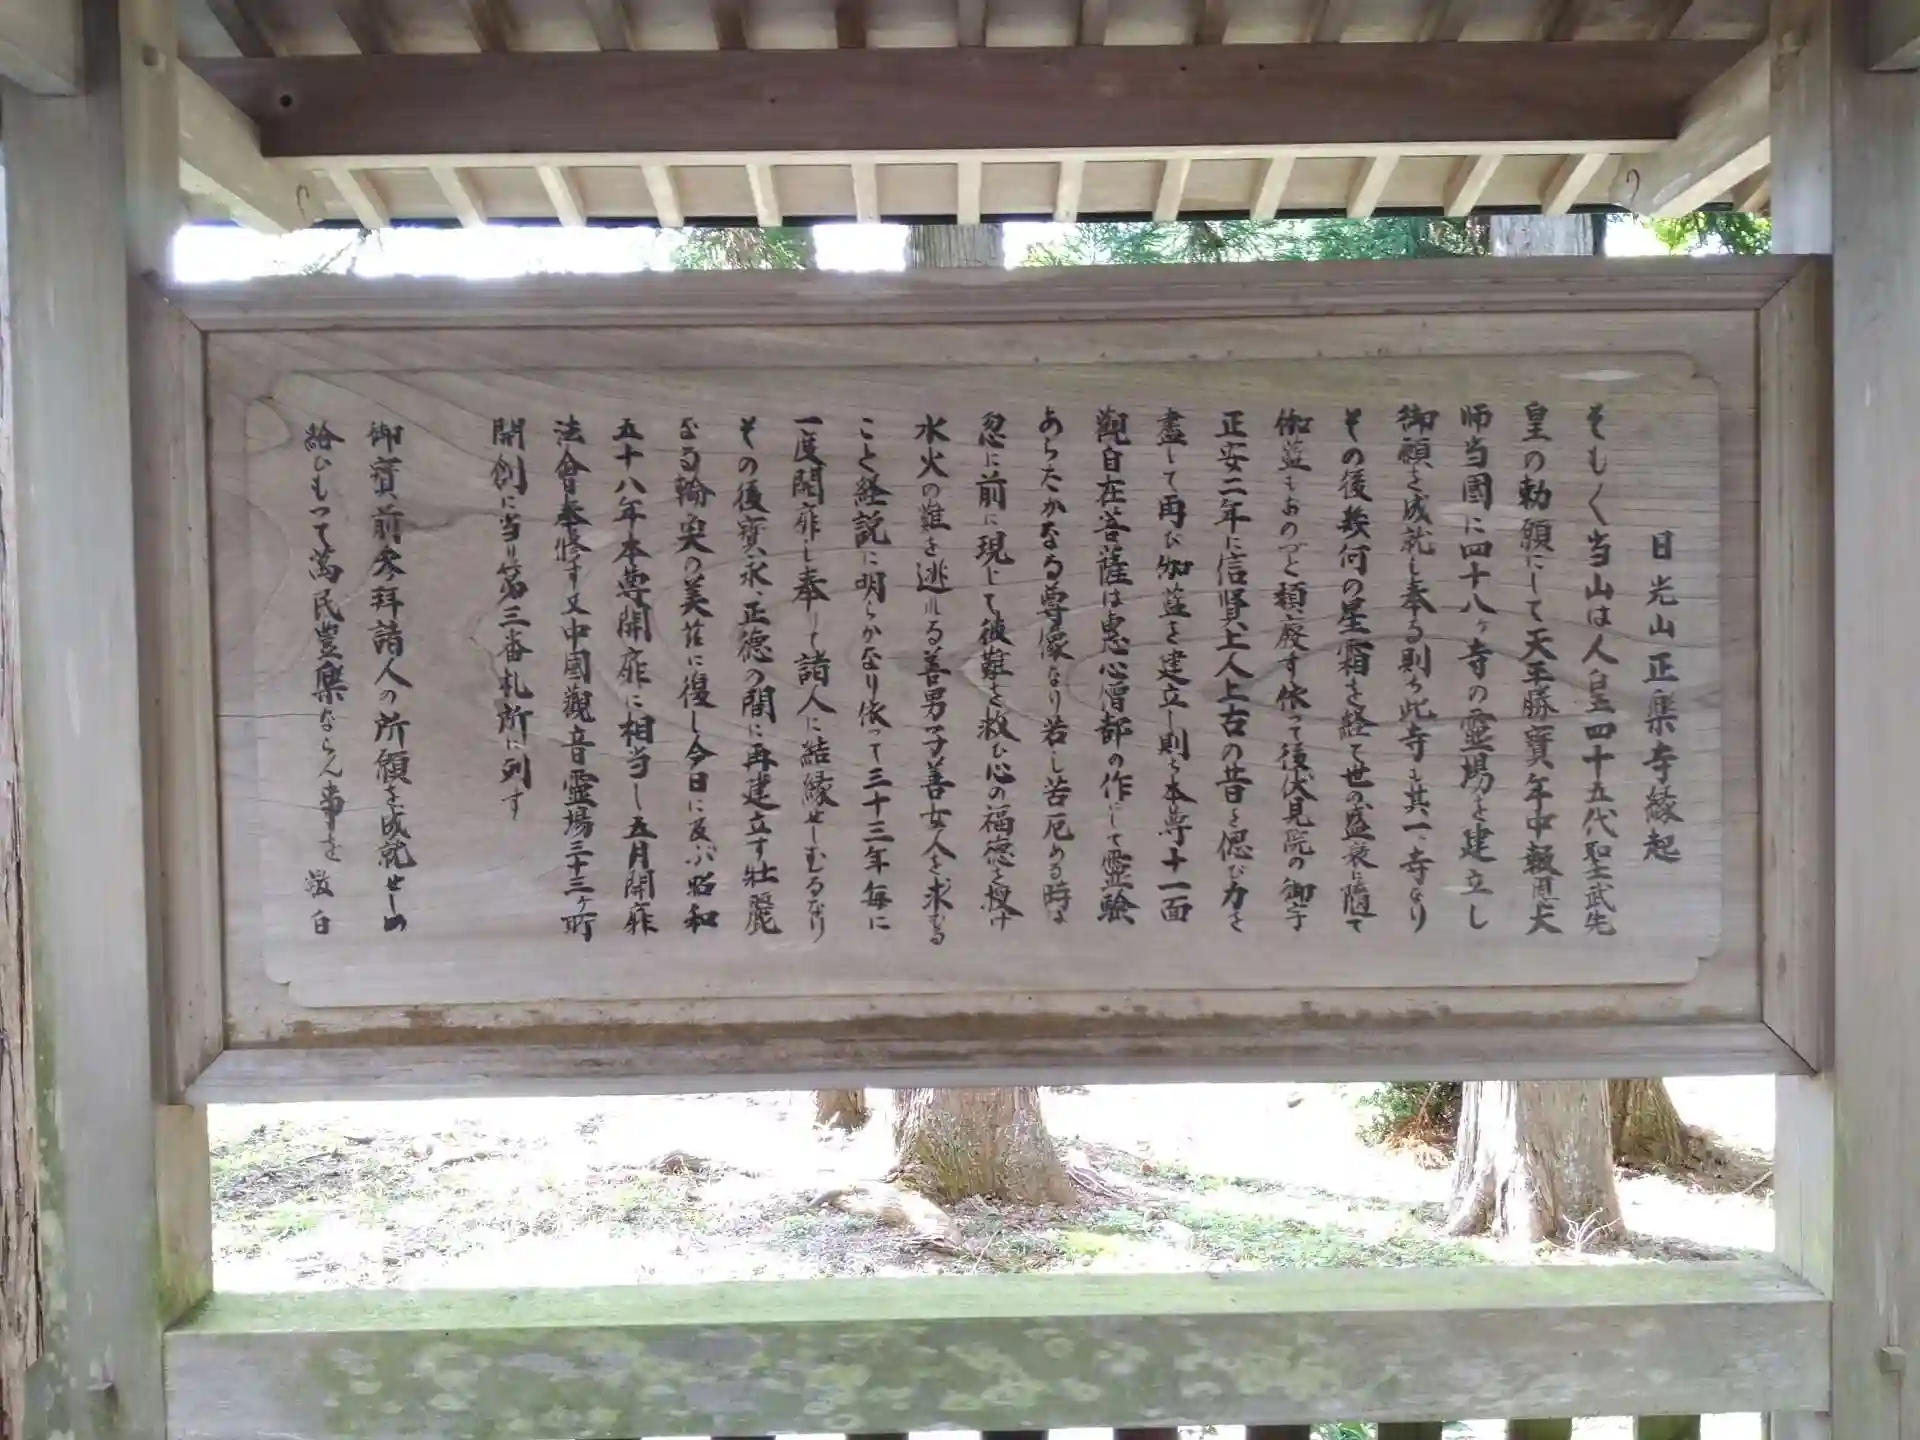 日光山正樂寺縁起
そもく当山は人皇四十五代聖武先
皇の勅願にして天平勝寶年中報恩大
師当國に四十八ヶ寺の霊場を建立し
御願を成就し奉る則ち此寺も其一寺なり
その後幾何の星霜を経て世の盛衰に隨て
伽藍もおのづと頽廢す依って後伏見院の御宇
正安二年に信賢上人上古の昔を偲び力を
盡して再び伽藍を建立し則ち本尊十一面
觀自在菩薩は恵心僧都の作にして霊験
あらたかなる尊像なり若し苦厄ある時は
忽に前に現じて彼難を救ひ心の福徳を授け
水火の難を逃れる善男子善女人を求むる
こと経説に明らかなり依って三十三年毎に
一度開扉し奉りて諸人に結縁せしむるなり
その後寶永、正徳の間に再建立す壮麗
なる輪奐の美茲に復し今日に及ぶ昭和
五十八年本尊開扉に相当し五月開扉
法會奉修す又中國觀音霊場三十三ヶ所
開創に当り第三番札所に列す
御寳前参拜諸人の所願を成就せしめ
給ひもって萬民豊樂ならん事を 敬白